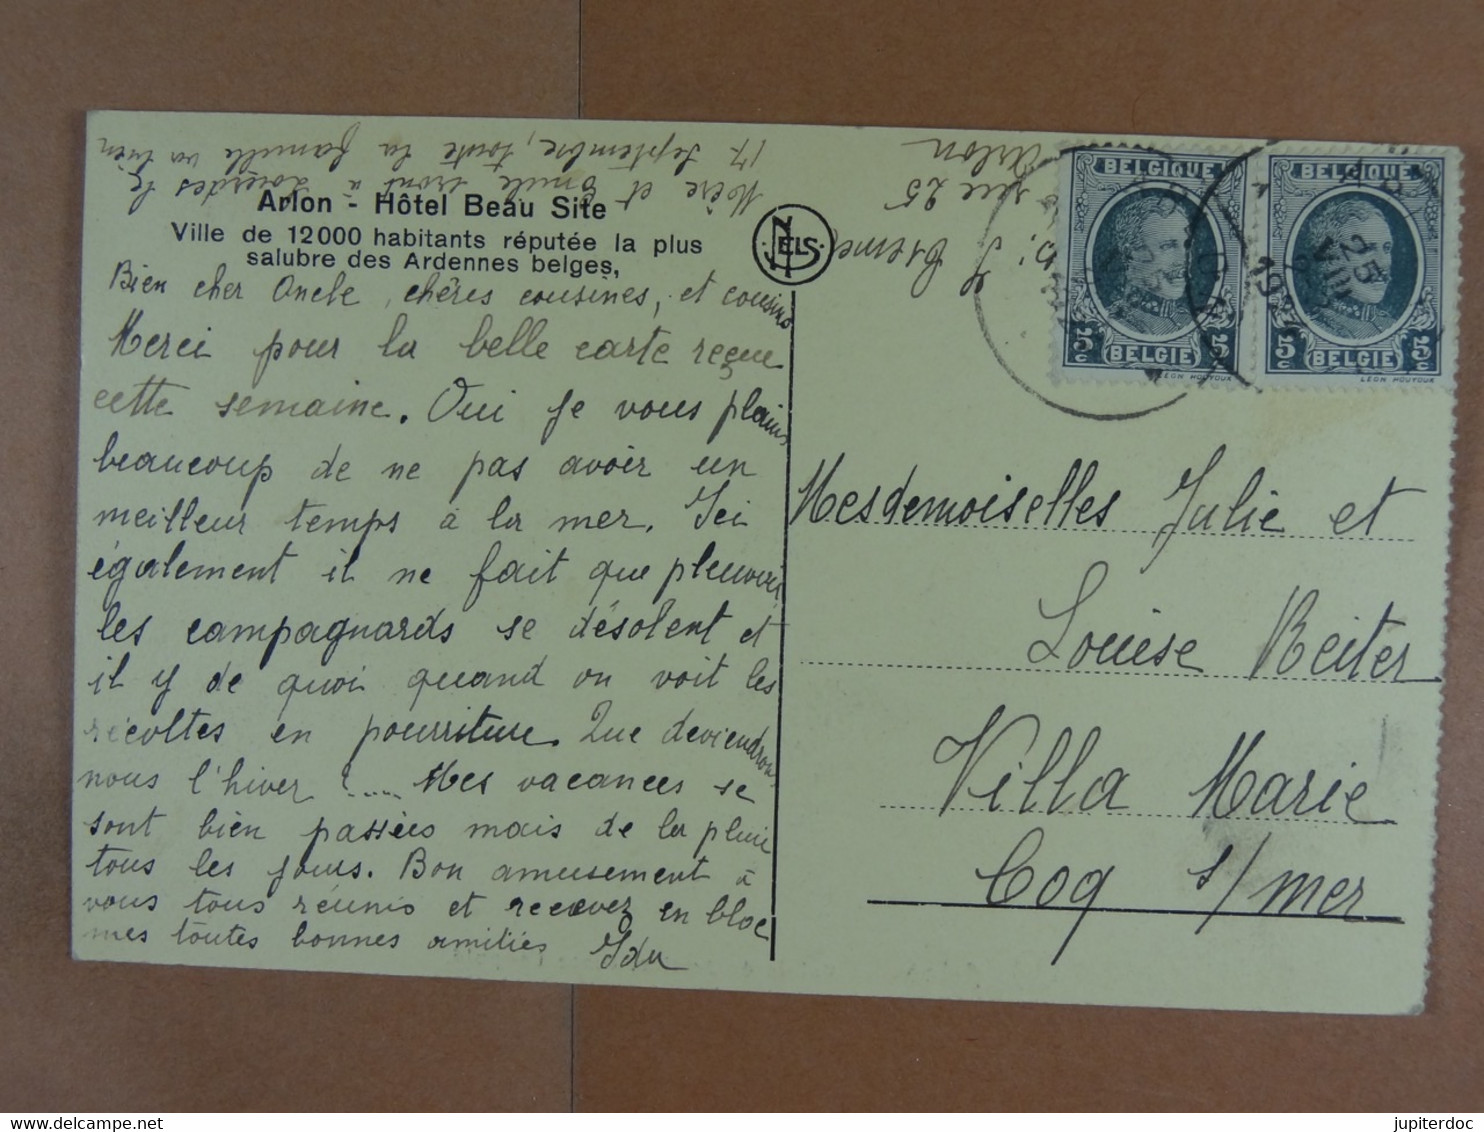 Arlon - Hôtel Beau Site
Ville de 12000 habitants réputée la plus
salubre des Ardennes belges,
NELS
Bien cher Oncle, chères cousines, et cousins
Merci pour la belle carte reçue
cette semaine. Oui je vous plains
beaucoup de ne pas avoir un
meilleur temps à la mer. Ici
également il ne fait que pleuvoir
les campagnards se désolent et
il y de quoi quand on voit les
récoltes en pourriture. Que deviendrons
nous l'hiver ?.... Mes vacances se
sont bien passées mais de la pluie
tous les jours. Bon amusement à
vous tous réunis et recevez en bloc
mes toutes bonnes amitiés Ida
Mère et Emile iront à Lourdes le
17 Septembre, toute la famille va bien
rue 25
Arlon
BELGIQUE
5c
5c
BELGIE
LEON HOUYOUX
BELGIQUE
5c
5c
BELGIE
LEON HOUYOUX
ARLON
25
VIII
19
Mesdemoiselles Julie et
Louise Reiter
Villa Marie
Coq s/mer
jupiterdoc